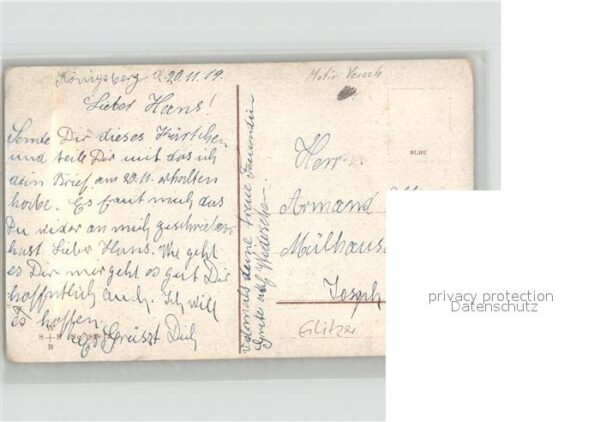 Königsberg d. 20.11.19.
Lieber Hans!
Sende Dir dieses Kärtchen
und teile Dir mit das ich
dein Brief am 20.11. erhalten
habe. Es freut mich das
Du wider an mich geschrieben
hast. Lieber Hans. Wie geht
es Dir mir geht es gut Dir
hoffentlich auch. Ich will
es hoffen.
Es Grüszt Dich
deine treue Freundin
Grete auf Wiedersehen
Motiv Versch
Herrn
Armand
Mülhaus
Joseph
Glitzer
S S
B
privacy protection
Datenschutz